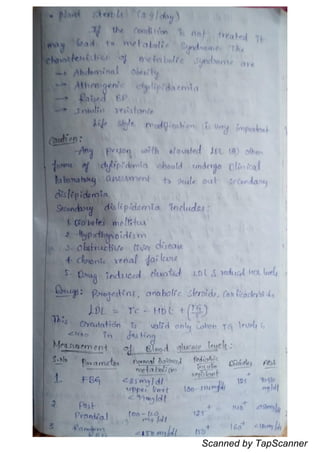 • plant sterols (2 g/day)
If the condition is not treated it
may lead to metabolic syndrome. The
characteristics of metabolic syndrome are
→ Abdominal obesity
→ Atherogenic dyslipidaemia
→ Raised BP
→ Insulin resistance
Life style modification is very important
Caution:
Any person with elevated LDL (or) other
form of dylipidemia should undergo clinical
laboratory assessment to rule out secondary
dislipidemia
Secondary dislipidemia includes:
1. Diabetes mellitus
2. Hypothyroidism
3. obstructive liver disease
4. chronic renal failure
5. Drug induced elevated LDL & reduced HDL levels
Drugs: Progestins, anabolic steroids, corticosteroids
LDL = TC - HDL + (TG
This equation is valid only when TG levels
<400 in fasting
Measurement of Blood glucose levels:
S.No Parameter normal Balanced metabolism Pediatric insulin resistant Diabetes
1. FBG <85mg/dl
upper limit
<99mg/dl
2 Post
Prandial 100-110 mg/dl
3 Random <150 mg/dl
Scanned by TapScanner